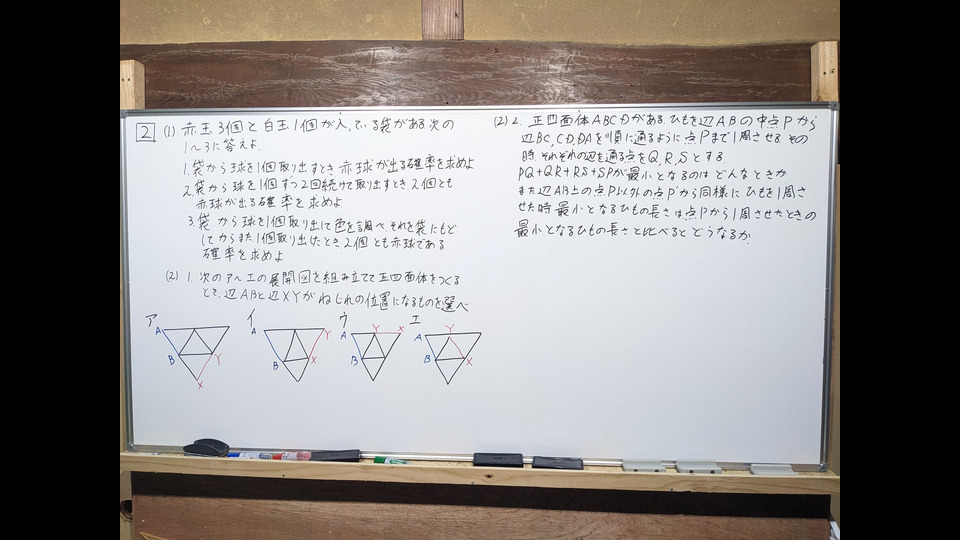 2 (1) 赤玉3個と白玉1個が入っている袋がある次の
1〜3に答えよ.
1.袋から球を1個取り出すとき 赤球が出る確率を求めよ
2.袋から球を1個ずつ2回続けて取り出すとき 2個とも
赤球が出る確率を求めよ
3.袋から球を1個取り出して色を調べ、それを袋にもど
してからまた1個取り出したとき2個とも赤球である
確率を求めよ
(2) 1. 次のア〜エの展開図を組み立てて正四面体をつくる
とき、辺ABと辺XYがねじれの位置になるものを選べ
ア イ ウ エ
A Y Y X A Y
A B Y X
B X A B B X
(2) 2. 正四面体ABCDがある.ひもを辺ABの中点Pから
辺BC,CD,DAを順に通るように点Pまで1周させる その
時 それぞれの辺を通る点をQ,R,Sとする.
PQ+QR+RS+SPが最小となるのはどんなときか
また辺AB上の点P以外の点P'から同様にひもを1周さ
せた時 最小となるひもの長さは点Pから1周させたときの
最小となるひもの長さと比べるとどうなるか